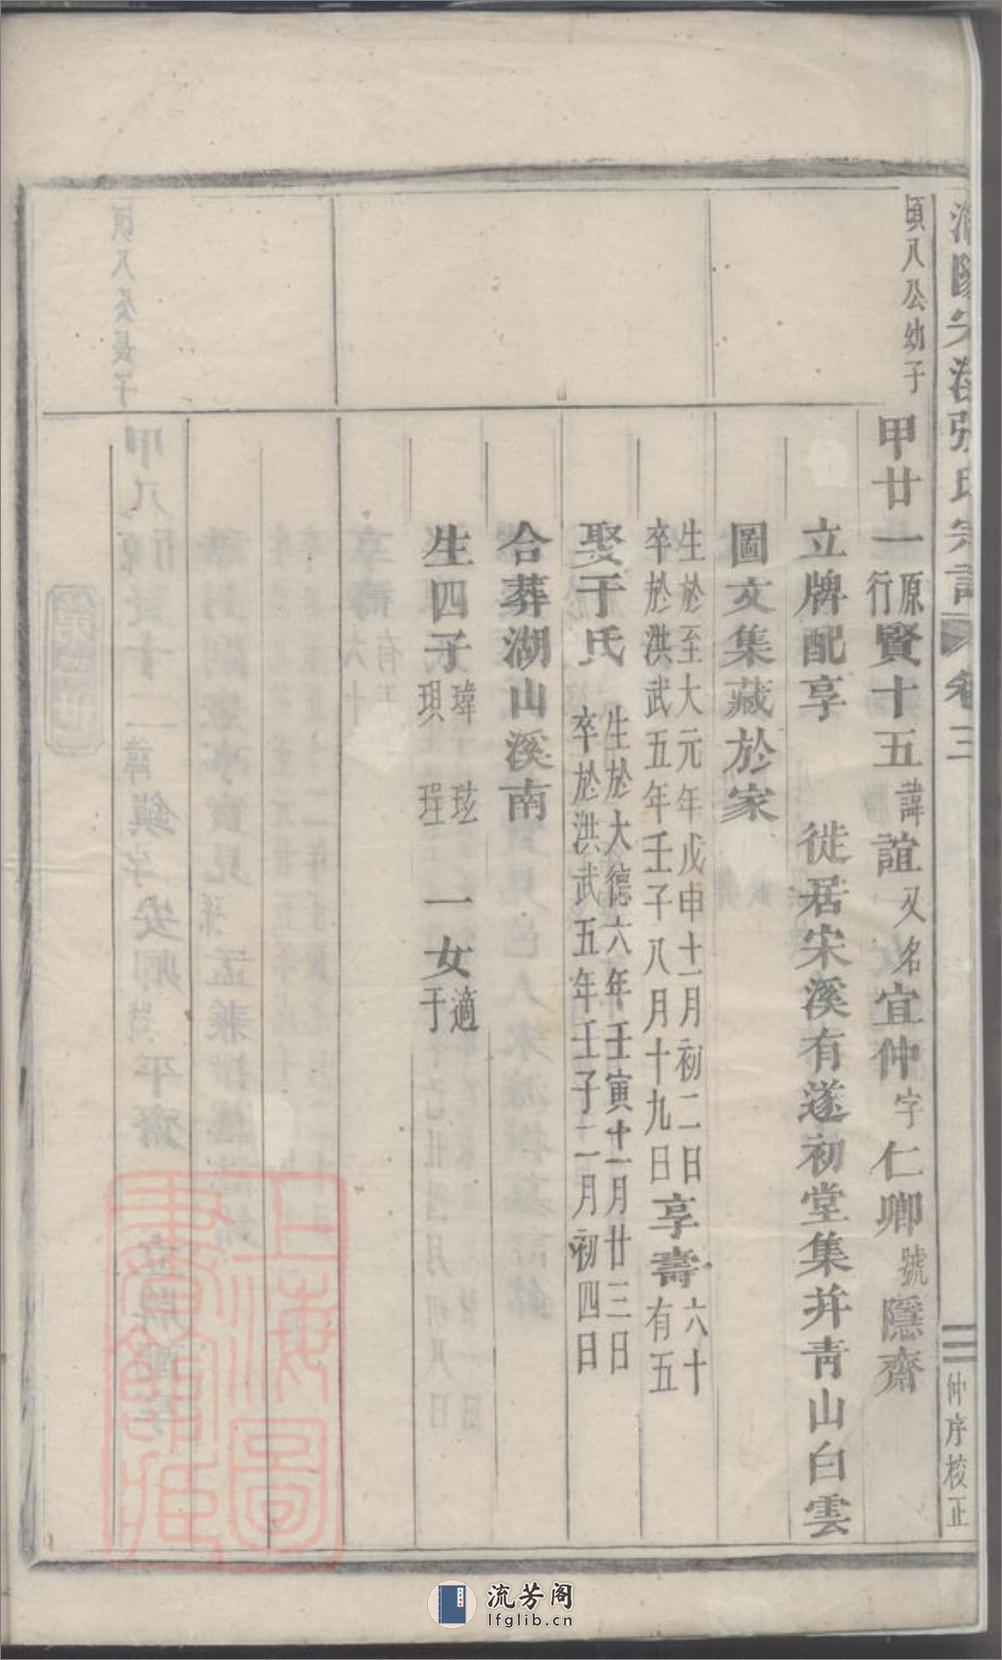 浦陽宋溪張氏宗譜 卷三 二 仲序校正
頃八公幼子
甲廿一原行賢十五諱誼又名宜仲字仁卿號隱齋
立牌配享 徙居宋溪有遂初堂集并青山白雲
圖文集藏於家
生於至大元年戊申十一月初二日
卒於洪武五年壬子八月十九日享壽六十有五
娶于氏生於大德六年壬寅十一月廿三日
卒於洪武五年壬子二月初四日
合葬湖山溪南
生四子瑋玹珼珵 一女適于
上海圖書館藏
流芳阁
lfglib.cn